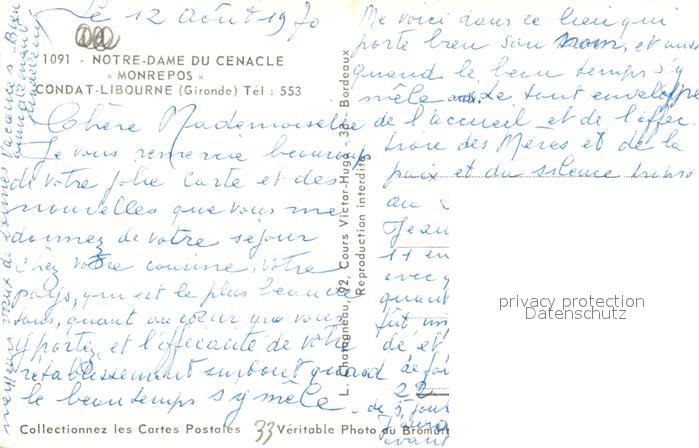 Le 12 Août 1970
1091 - NOTRE-DAME DU CENACLE
« MONREPOS »
CONDAT-LIBOURNE (Gironde) Tél : 553
Chère Mademoiselle
Je vous remercie beaucoup
de votre jolie carte et des
nouvelles que vous me
donnez de votre séjour
chez votre cousine, votre
pays, qui est le plus beau de
tous, quant au cœur que vous
y portez et l'efficacité de votre
rétablissement surtout quand
le beau temps s'y mêle
Me voici dans ce lieu qui
porte bien son nom, et aussi
quand le beau temps s'y
mêle. Le tout enveloppé
de l'accueil et de l'affec
tion des Mères et de la
paix et du silence
au
Jean
11 en
avec
quant
fût un
de et
de
22
de 5 jours
J'aurai
avant
meilleurs vœux de bonnes vacances. Bien
amicalement
L. Chatagneau, 92, Cours Victor-Hugo - 33 - Bordeaux
Reproduction interdite
Collectionnez les Cartes Postales
33
Véritable Photo au Bromure
privacy protection
Datenschutz